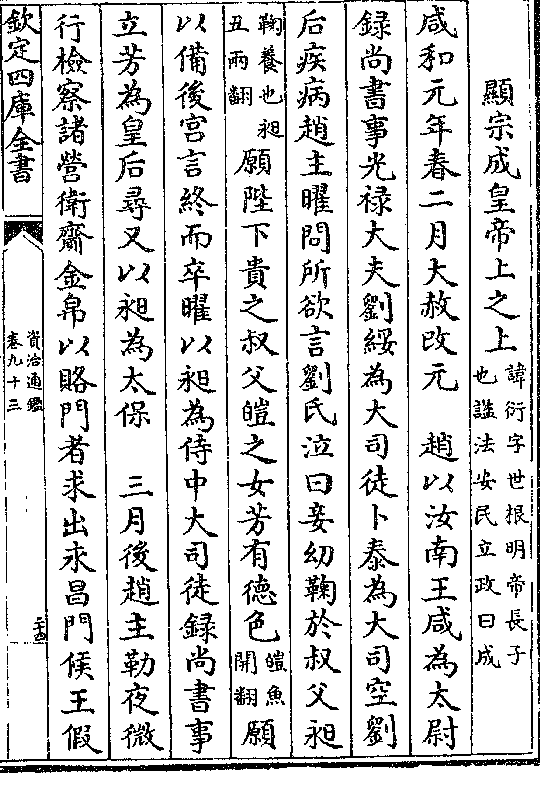 顯宗成皇帝上之上諱衍字世根明帝長子
也諡法安民立政曰成
咸和元年春二月大赦改元　趙以汝南王咸為太尉
録尚書事光祿大夫劉綏為大司徒卜泰為大司空劉
后疾病趙主曜問所欲言劉氏泣曰妾幼鞠於叔父昶
鞠養也昶
丑兩翻
願陛下貴之叔父皚之女芳有德色
皚魚
開翻
願
以備後宮言終而卒曜以昶為侍中大司徒録尚書事
立芳為皇后尋又以昶為太保　三月後趙主勒夜微
行檢察諸營衛齎金帛以賂門者求出永昌門候王假
欽定四庫全書
資治通鑑
卷九十三